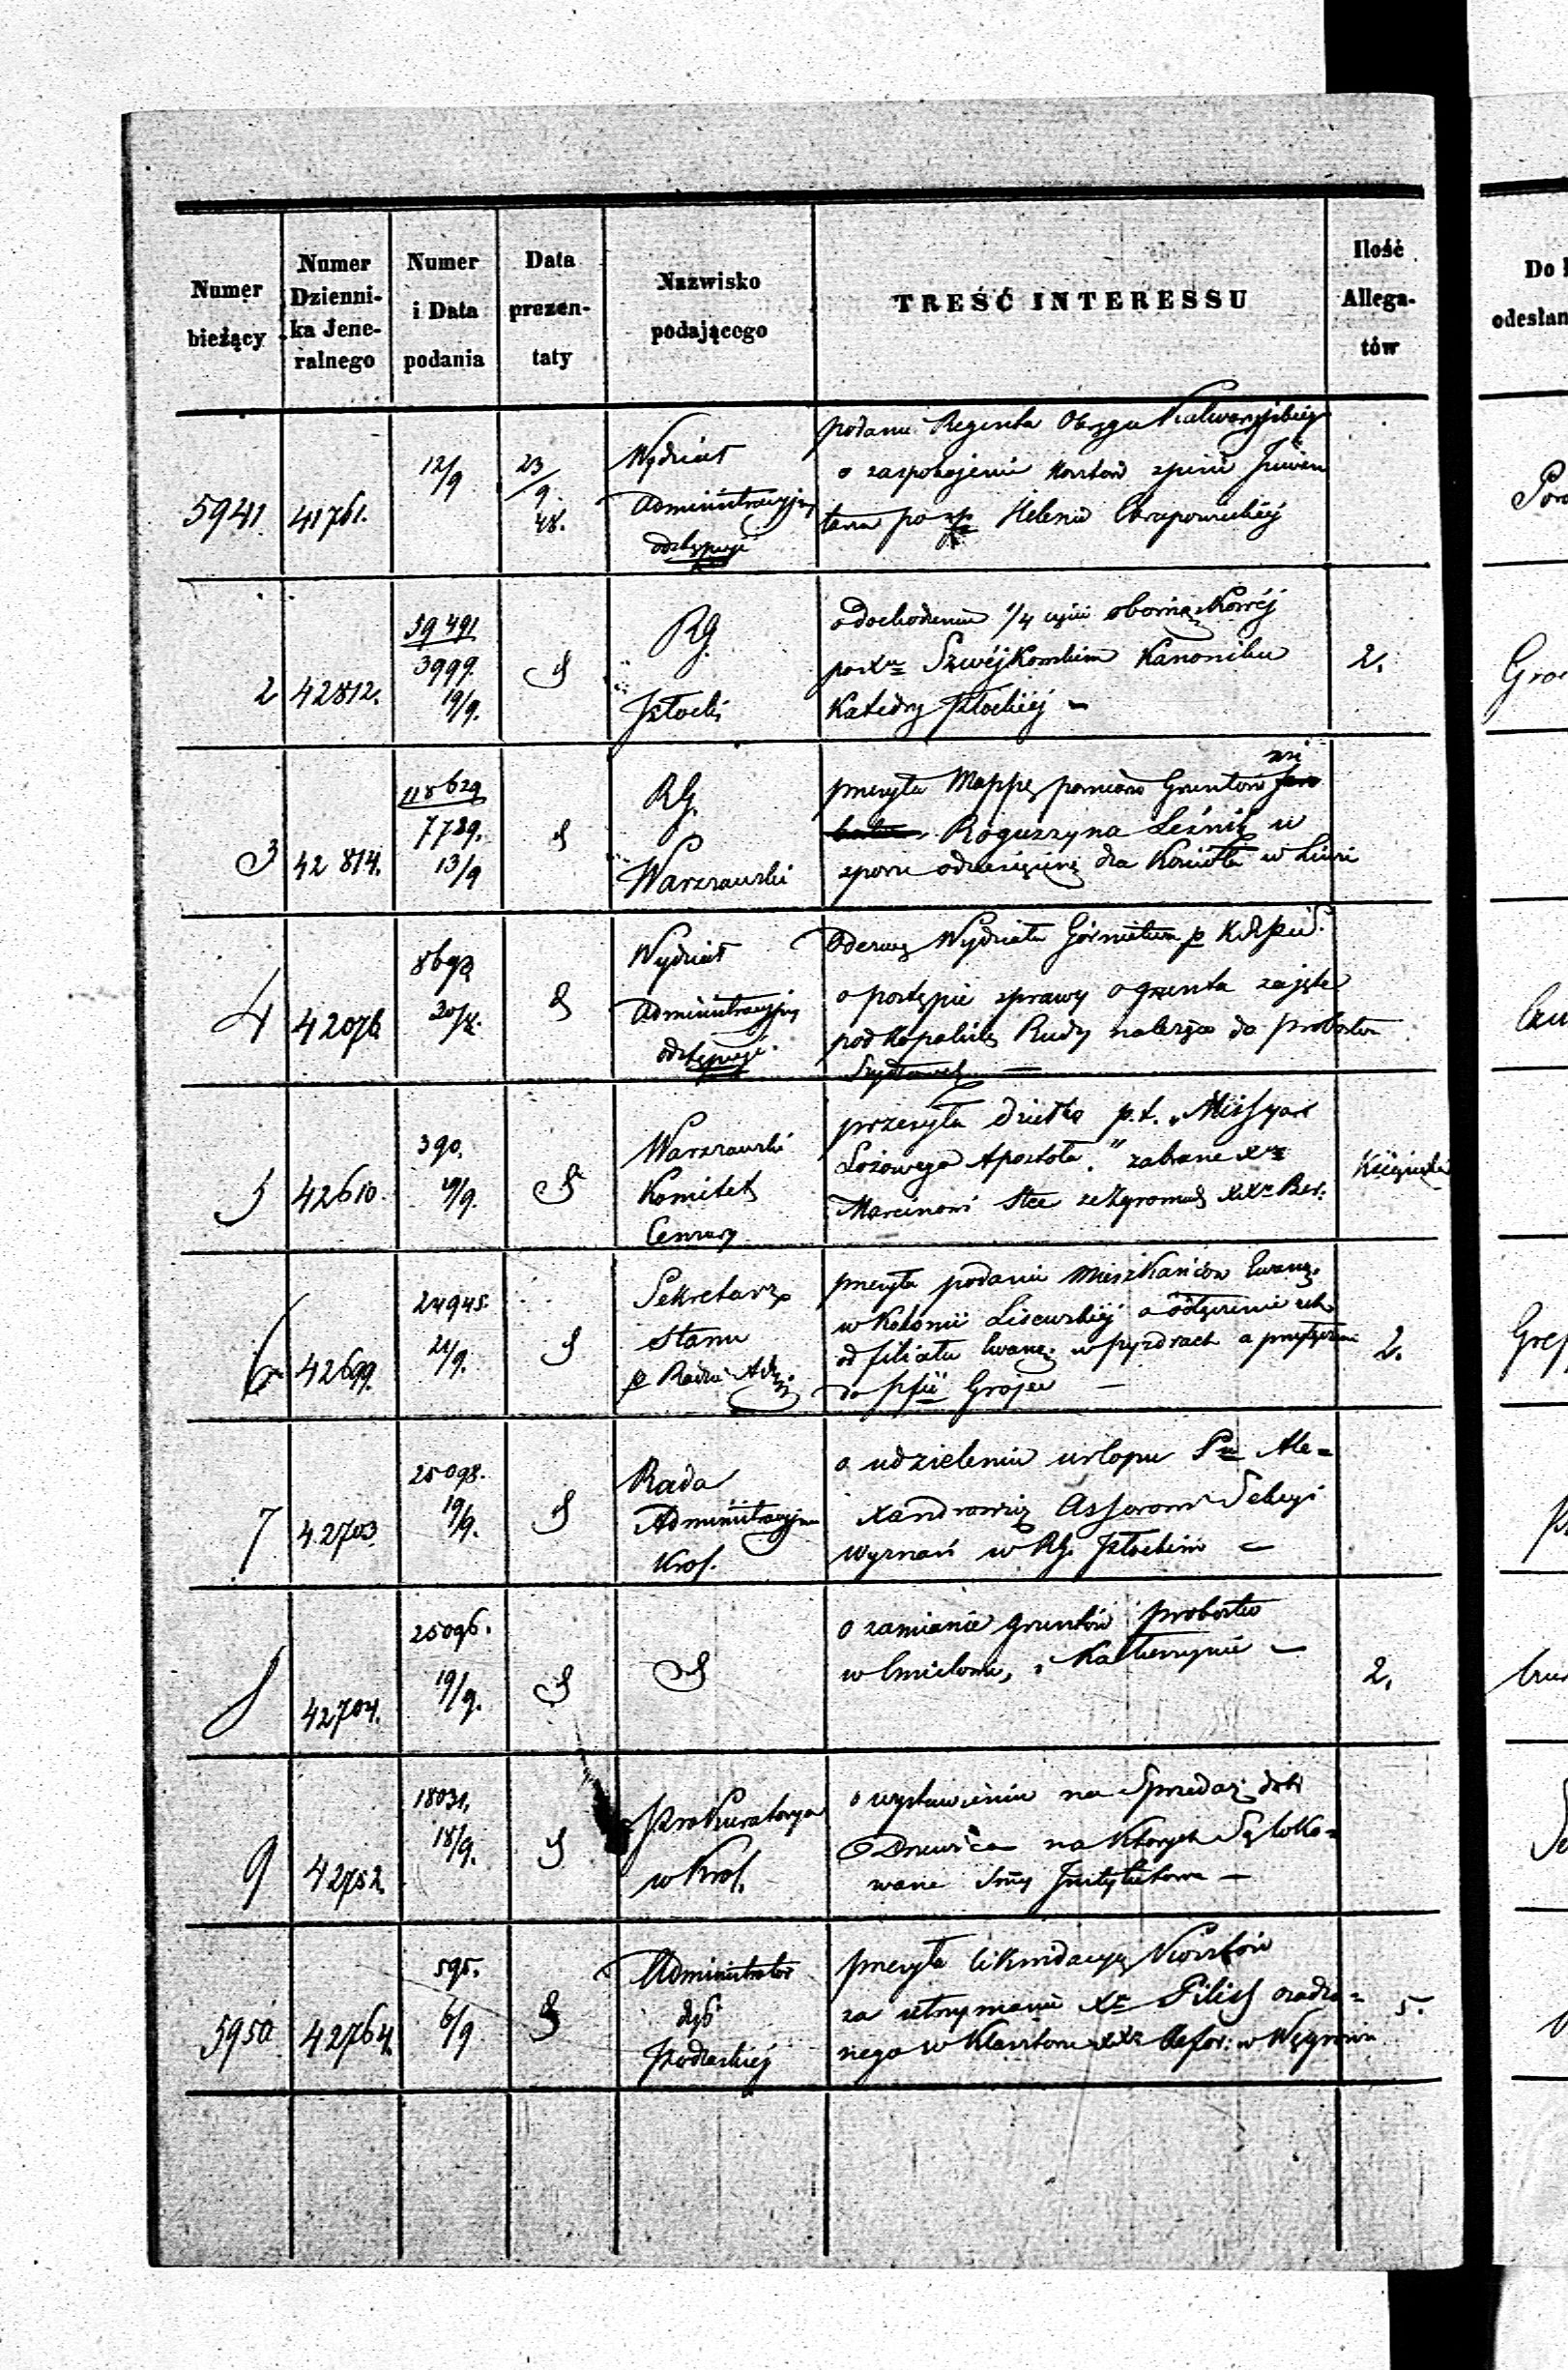 Numer bieżący
Numer Dzienni-ka Jene-ralnego
Numer i Data podania
Data prezen-taty
Nazwisko podającego
TREŚĆ INTERESSU
Ilość Allega-tów
5941. 41761. 12/9 23/9 48.
Wydział
Administracyjny
odstępuje
podanie Regenta Okręgu Kalwaryjskiego
o zaspokojenie kosztów spisu Inwen
tarza po Helenie
2 42812. 39491 3999. 19/9.
RG.
Płocki
o dochodzeniu 1/4 części
po Xu Szwéjkowskim Kanoniku
Katedry Płockiéj –
2.
3 42814. 118629 7739. 13/9
RG.
Warszawski
przesyła Mappę pomiaru Gruntów wsi
Roguszyna Leśnik w
sporze o dziesięcinę dla Kościoła w Liwie
4 42076 8693 20/9.
Wydział
Administracyjny
odstępuje
Odezwę Wydziału Górnictwa p
o postępie sprawy o grunta zajęte
pod kopalnię Rudy należące do probostwa
5 42610. 390. 19/9.
Warszawski
Komitet
Cenzury
przesyła dziełko p.t. „Missyarz
Apostoła." zabrane
Marcinowi ze Zgromad XXw Ber:
Książeczka
6 42699. 24945. 21/9.
Sekretarz
Stanu
p Radzie
przesyła podanie Mieszkańców Ewang.
w Kolonii Lisewskiéj o odłączenie ich
od filiału Ewang: w Pyzdrach a przyłączenie
do Grojec –
2.
7 42703. 25098. 19/9.
Rada
Administracyjna
Król.
o udzielenie urlopu Pu Ale=
xandrowicz Assesorowi Sekcyi
Wyznań w RG. Płockim –
8 42704. 25096. 19/9.
o zamianie gruntów probostw
w Ćmielowie, i Katarzynie –
2.
9 42752. 18031. 18/9.
Prokuratorya
w Król.
o wystawieniu na Sprzedaż dóbr
Drzewica na których Są loko=
wane Sumy Instytutowe –
5950. 42764. 595. 6/9
Administrator
dyec
Podlaskiéj
przesyła likwidacyę Kosztów
za utrzymanie Xa osadzo=
nego w Klasztorze XXw Refor: w Węgrowie
5.
Do
odesłan